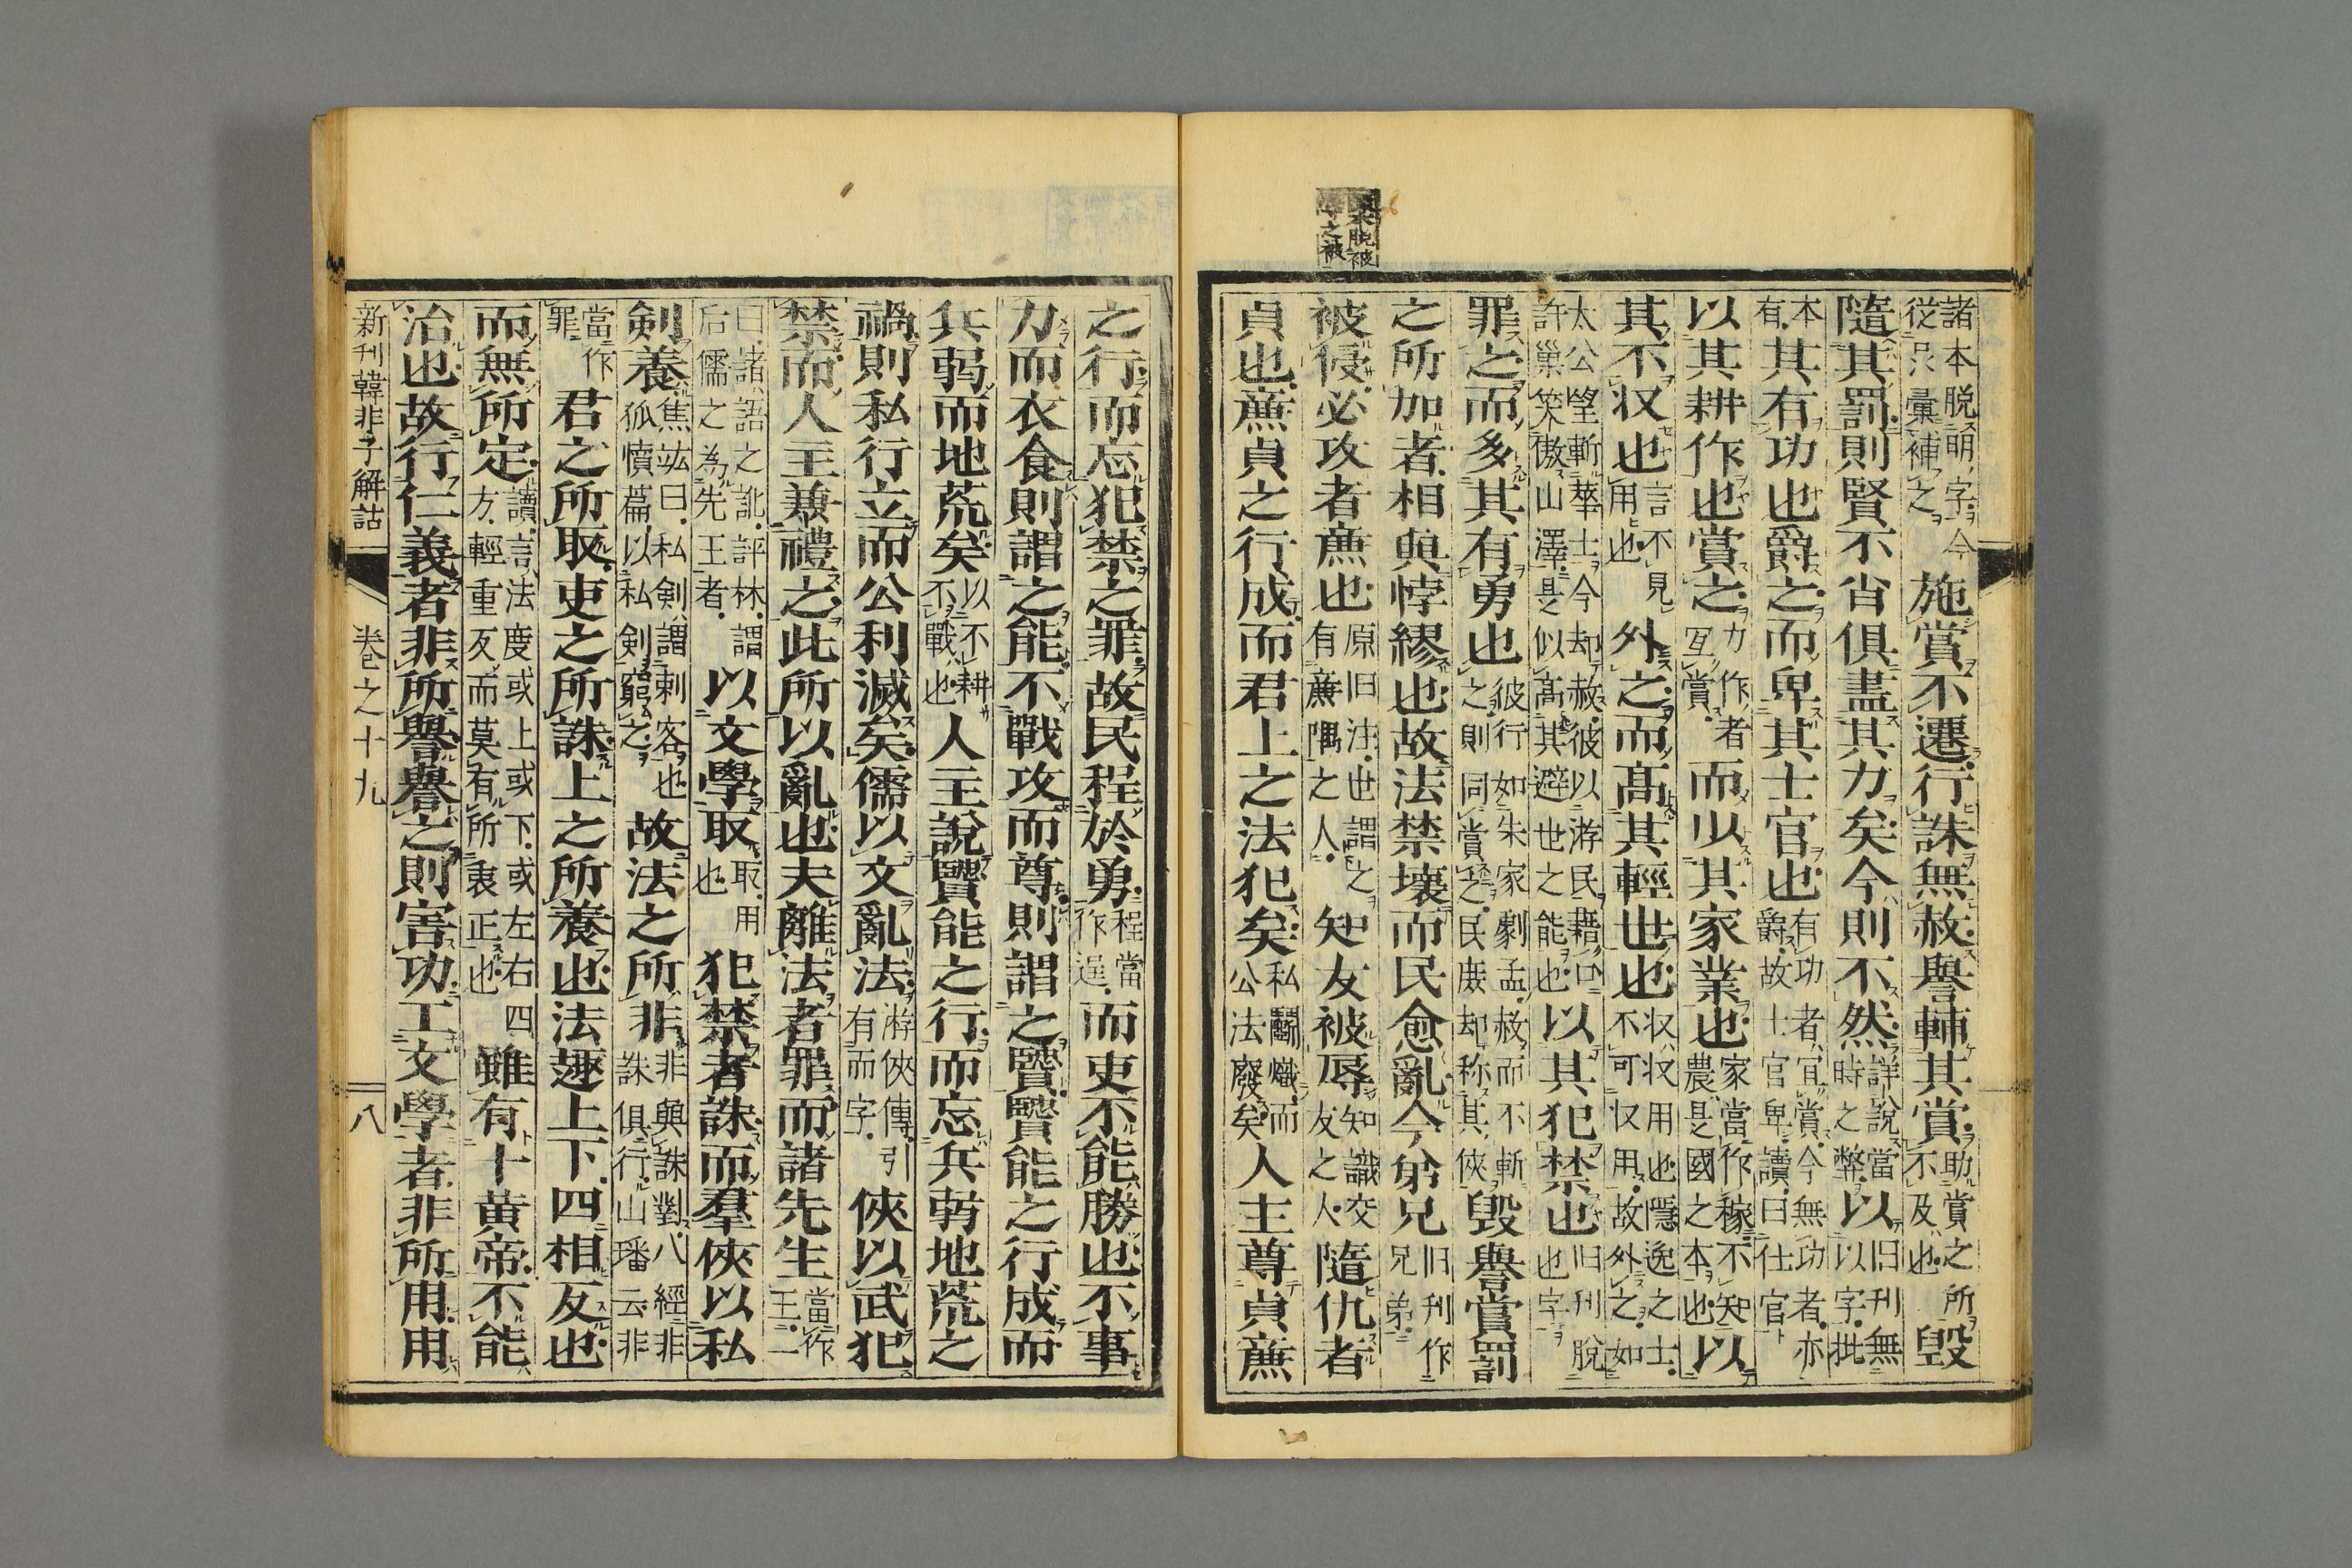 諸本脱明字今從呉彙補之施賞不遷行誅無赦譽輔其賞助賞之所不及也毀
隨其罰則賢不肖俱盡其力矣今則不然詳説當時之弊以旧刊無以字批
本有其有功也爵之而卑其士官也有功者宜賞今無功者亦爵故士官卑讀曰仕官
以其耕作也賞之力作者互賞而以其家業也家當作稼不知農是國之本也以
其不収也言不見用也外之而髙其輕世也収収用也隱逸之士不可収用故外之如
太公望斬華士今却赦彼以游民藉口許巢笑傲山澤是似髙其避世之能也以其犯禁也旧刊脱也字
罪之而多其有勇也彼行如朱家劇孟赦而不斬之則同賞之民庶却称其俠毀譽賞罰
之所加者相與悖繆也故法禁壞而民愈亂今弟兄旧刊作兄弟
被侵必攻者廉也原旧注世謂之有廉隅之人知友被辱知識交友之人隨仇者
貞也廉貞之行成而君上之法犯矣私鬪熾而公法廢矣人主尊貞廉
之行而忘犯禁之罪故民程於勇程當作逞而吏不能勝也不事
力而衣食則謂之能不戰攻而尊則謂之賢賢能之行成而
兵弱而地荒矣以不耕不戰也人主説賢能之行而忘兵弱地荒之
禍則私行立而公利滅矣儒以文亂法游俠傳引有而字俠以武犯
禁而人主兼禮之此所以亂也夫離法者罪而諸先生當作王二
曰諸語之訛評林謂后儒之為先王者以文學取取用也犯禁者誅而羣俠以私
剣養焦竑曰私剣謂刺客也狐憤篇以私剣窮之故法之所非非與誅對八經非誅俱行山璠云非
當作罪君之所取吏之所誅上之所養也法趣上下四相反也
而無所定讀言法度或上或下或左右四方輕重反而莫有所衷正也雖有十黄帝不能
治也故行仁義者非所譽譽之則害功工文學者非所用用
新刊韓非子解詁　卷之十九　八